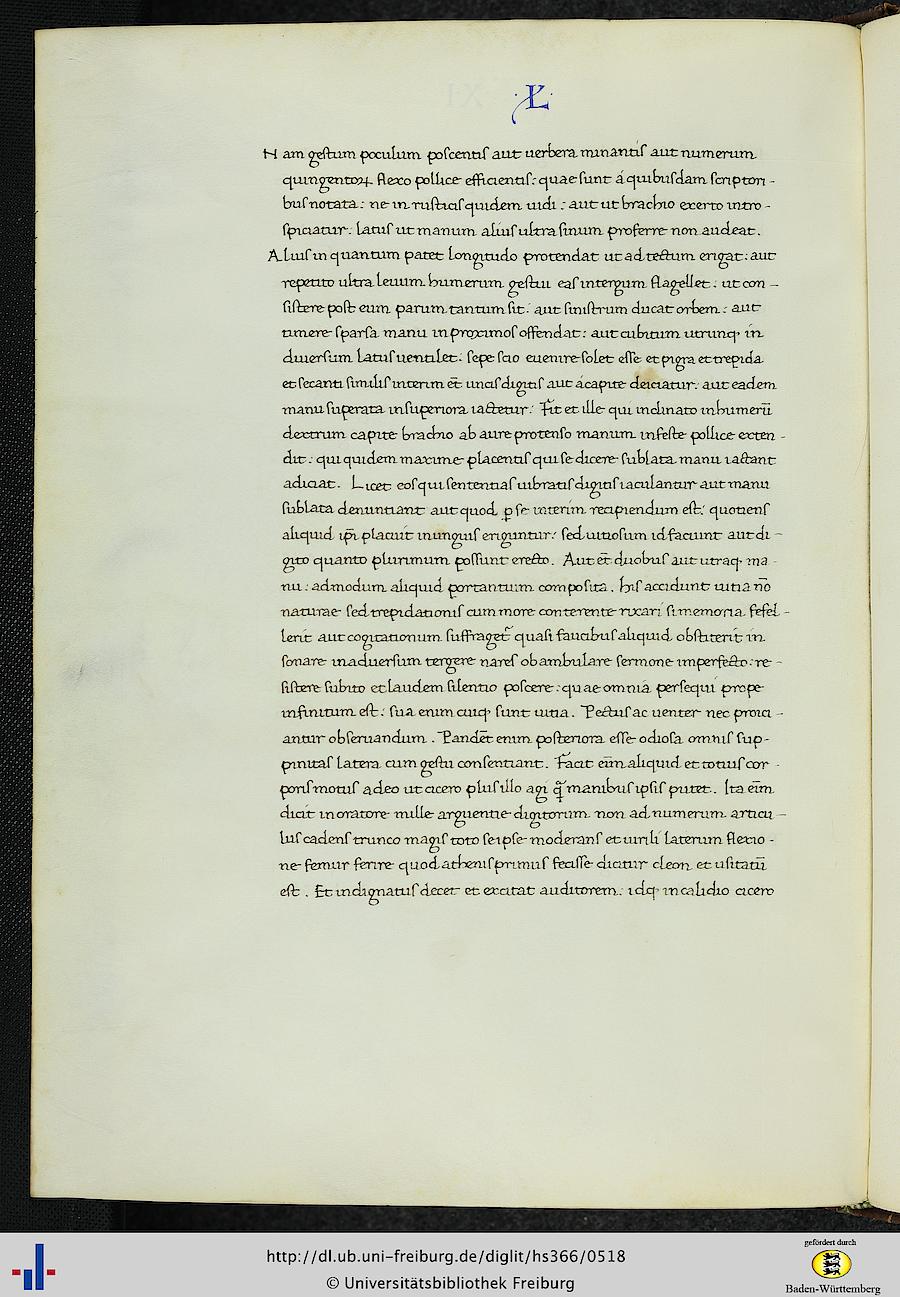 ·L·
Nam gestum poculum poscentis aut uerbera minantis aut numerum
quingentoꝝ flexo pollice efficientis: quae sunt á quibusdam scriptori-
bus notata: ne in rusticis quidem uidi: aut ut brachio exerto intro-
spiciatur: latus ut manum alius ultra sinum proferre non audeat.
Alius in quantum patet longitudo protendat ut ad tectum erigat: aut
repetito ultra leuum humerum gestui eas in tergum flagellet: ut con-
sistere post eum parum tantum sit: aut sinistrum ducat orbem: aut
timere sparsa manu in proximos offendat: aut cubitum utrunq; in
diuersum latus uentilet: sepe scio euenire solet esse et pigra et trepida
et secanti similis interim et̄ uncis digitis aut á capite deiciatur: aut eadem
manu superata in superiora iactetur: Fit et ille qui inclinato in humerū
dextrum capite brachio ab aure protenso manum infeste pollice exten-
dit: qui quidem maxime placentis qui se dicere sublata manu iactant
adiciat. Licet eos qui sententias uibratis digitis iaculantur aut manu
sublata denuntiant aut quod ꝑ se interim recipiendum est: quotiens
aliquid ip̄i placuit in unguis eriguntur: sed uitiosum id faciunt aut di-
gito quanto plurimum possunt erecto. Aut et̄ duobus aut utraq; ma-
nu: ad modum aliquid portantium composita. his accidunt uitia nō
naturae sed trepidationis cum more conterente rixari si memoria fefel-
lerit aut cogitationum suffraget᷑ quasi faucibus aliquid obstiterit in
sonare in aduersum tergere nares obambulare sermone imperfecto: re-
sistere subito et laudem silentio poscere: quae omnia persequi prope
infinitum est: sua enim cuiq; sunt uitia. Pectus ac uenter nec proici-
antur obseruandum. Pandet̄ enim posteriora esse odiosa omnis sup-
pinitas latera cum gestu consentiant. Facit eīm aliquid et totius cor-
poris motus adeo ut cicero plus illo agi q̄ manibus ipsis putet. Ita eīm
dicit in oratore mille arguentie digitorum non ad numerum articu-
lus cadens trunco magis toto se ipse moderans et uirili laterum flexio-
ne femur ferire quod athenis primus fecisse dicitur cleon et usitatū
est. Et indignatus decet et excitat auditorem: idq; in calidio cicero
http://dl.ub.uni-freiburg.de/diglit/hs366/0518
© Universitätsbibliothek Freiburg
gefördert durch
Baden-Württemberg